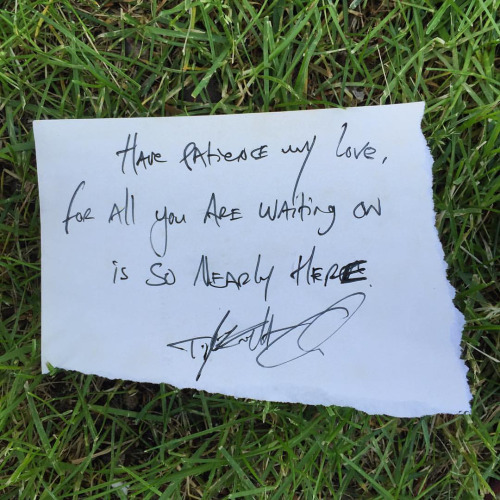 Have patience my love,
for all you are waiting on
is so nearly here.